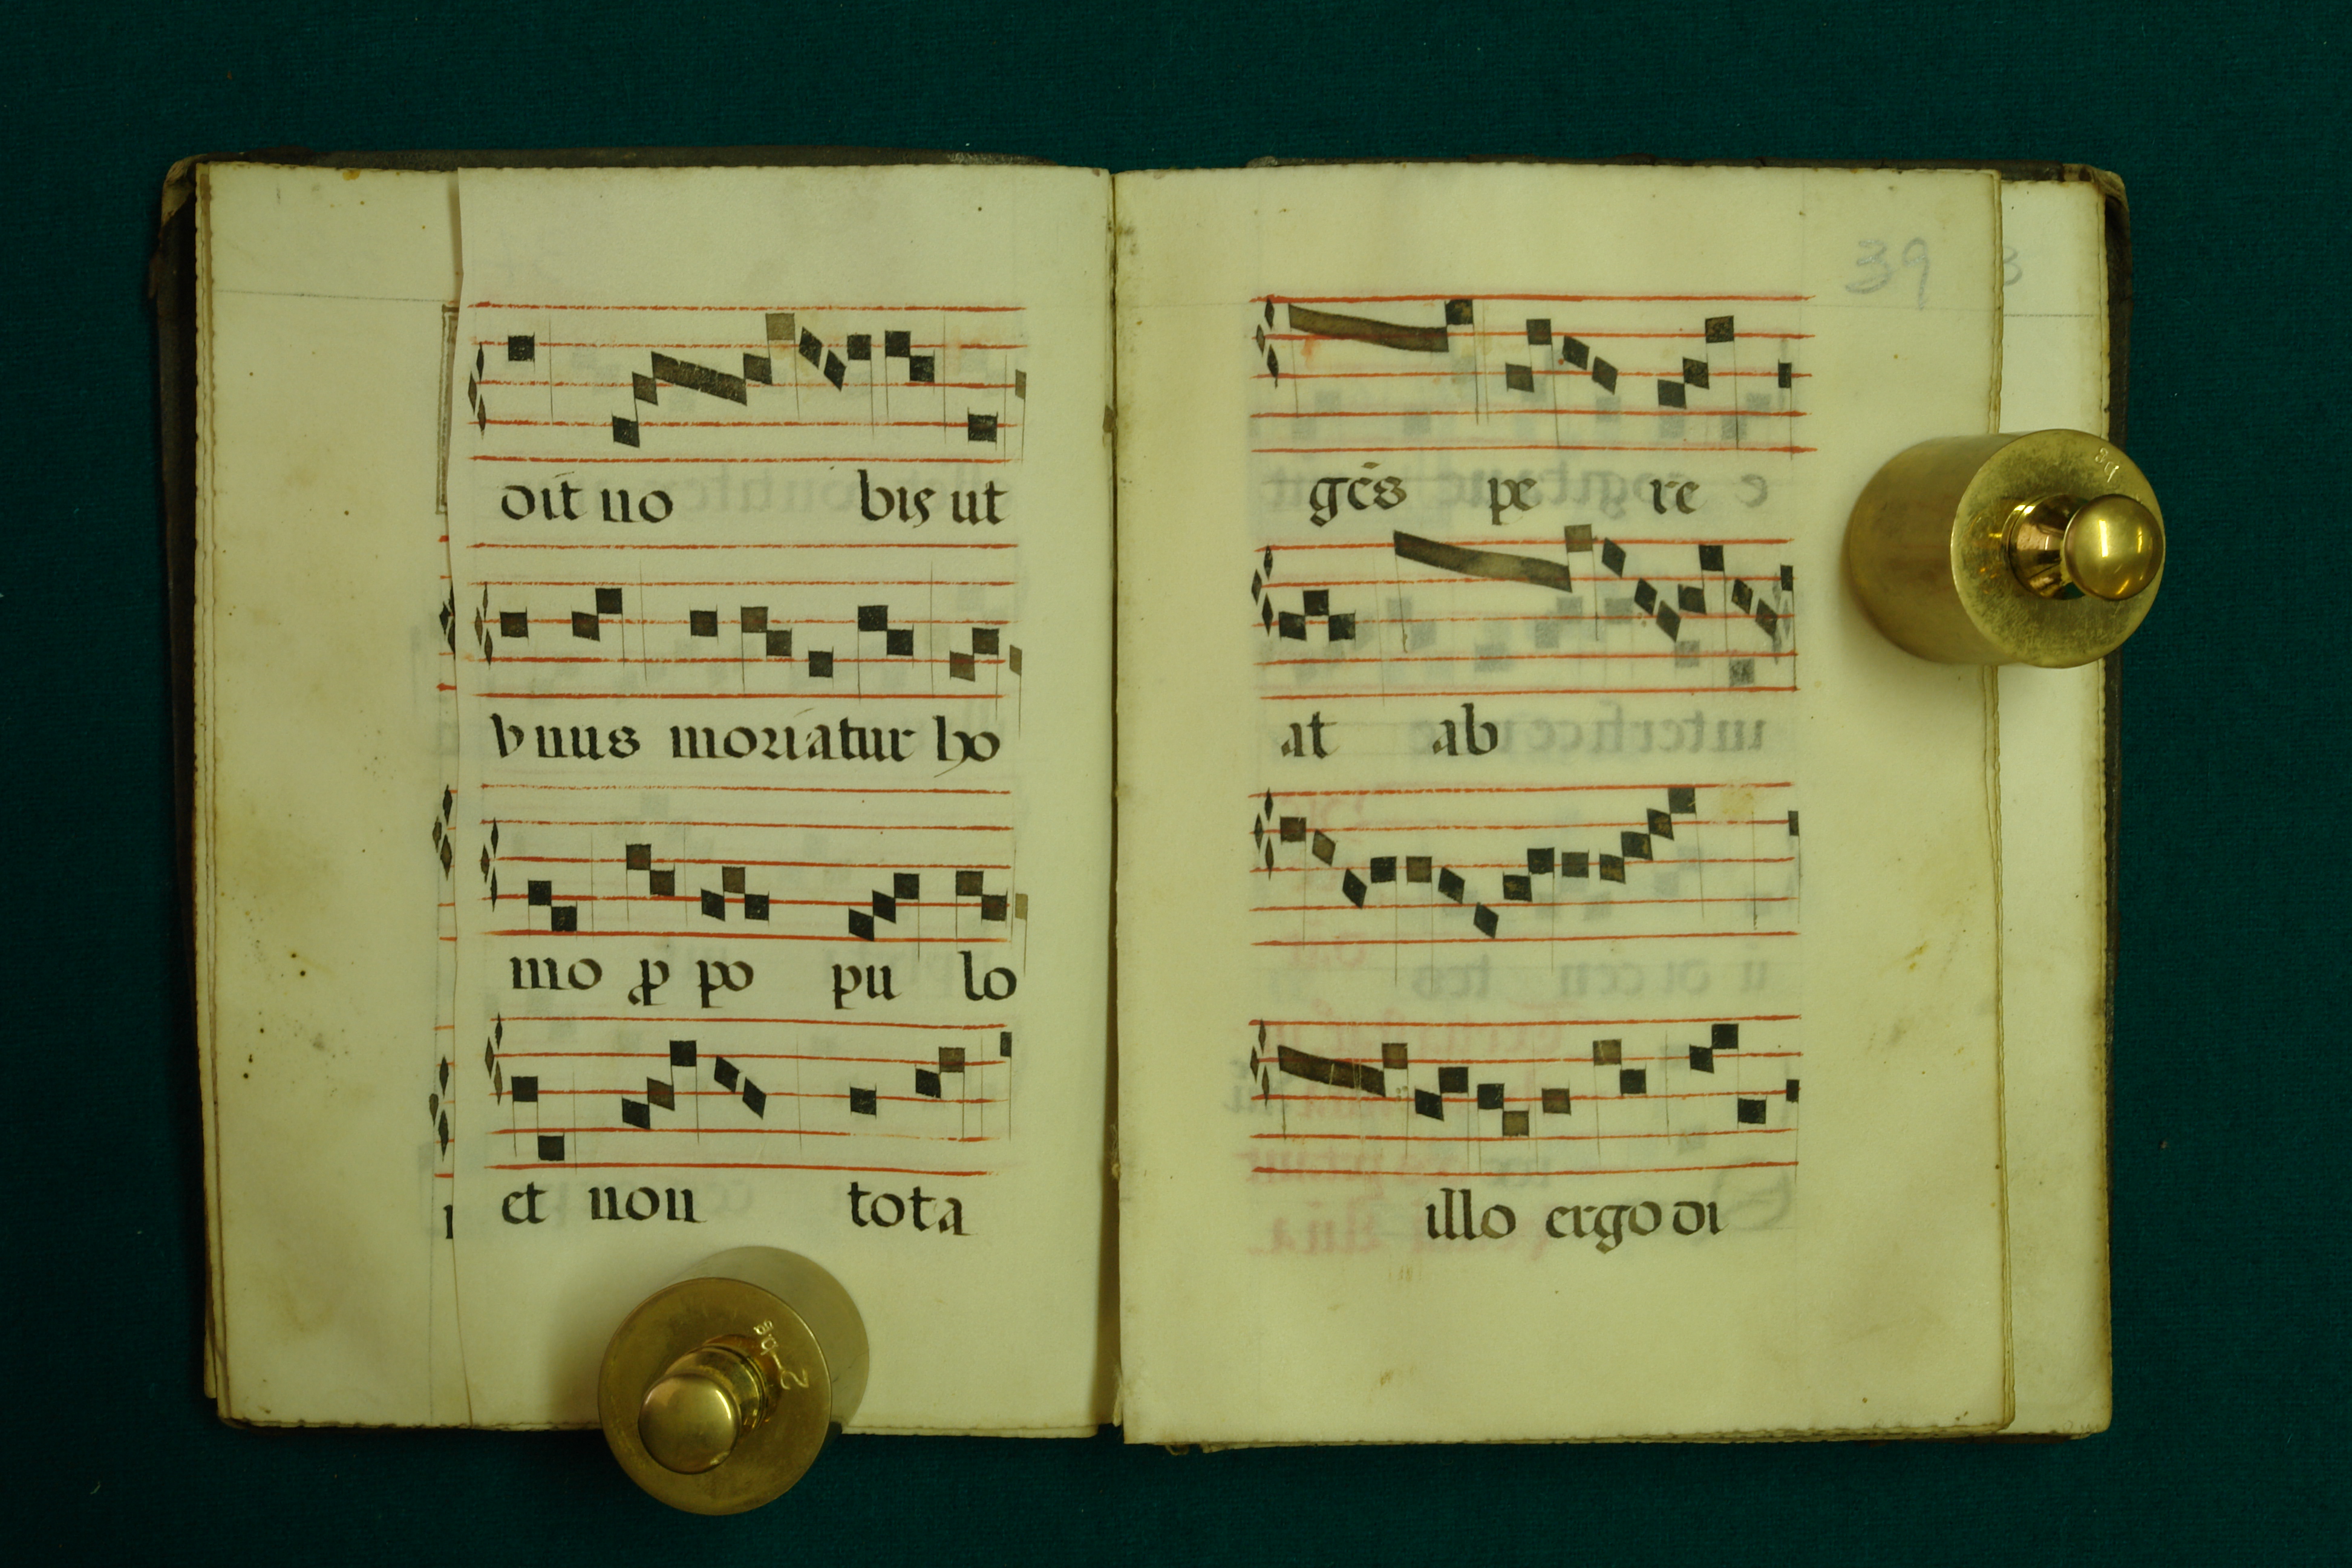 dit no bis ut
vnus moriatur ho
mo ꝓ po pu lo
et non tota
39
gēs pe re
at ab
illo ergo di